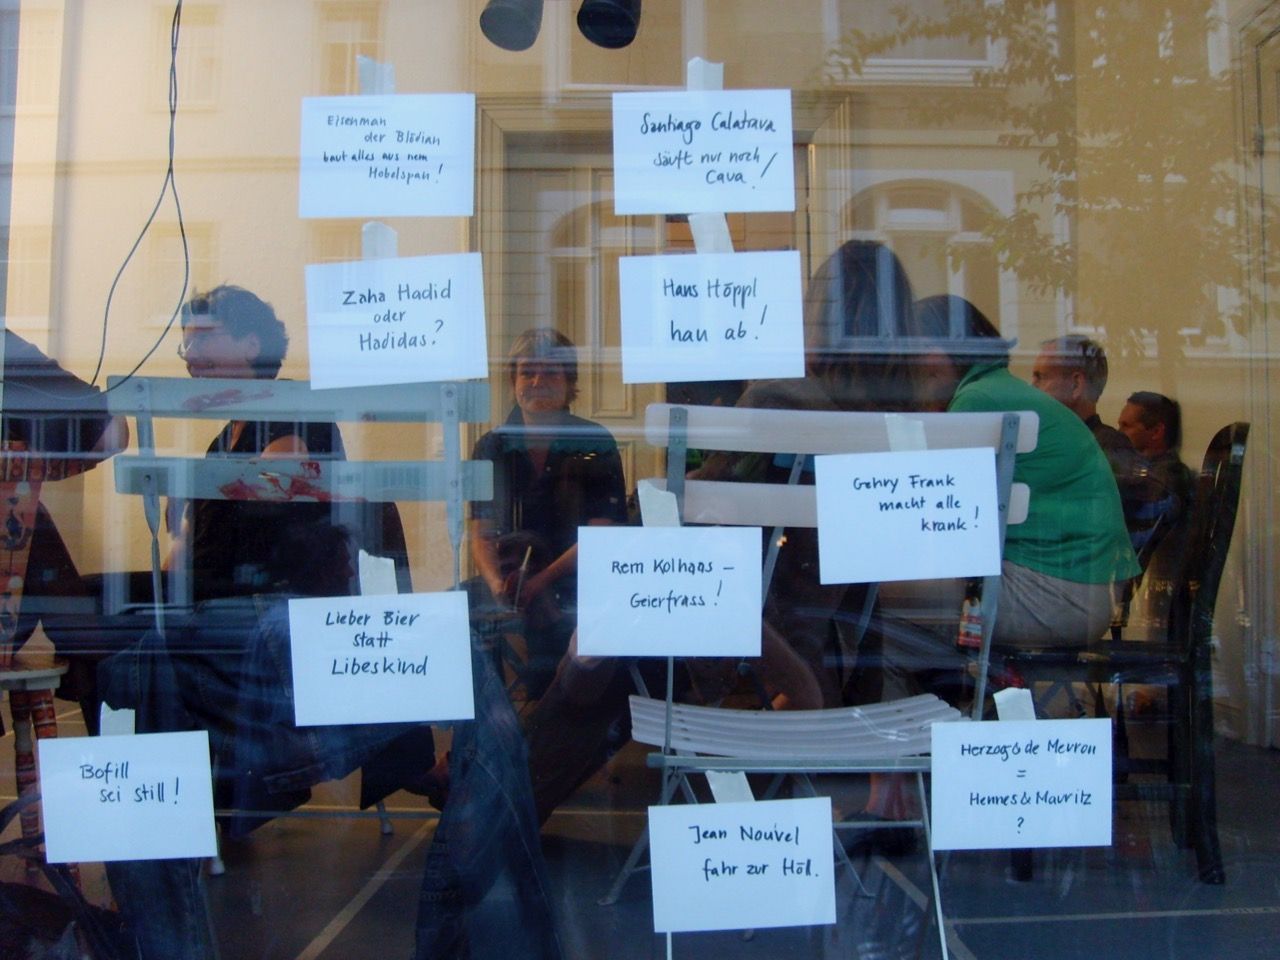 Eisenman
der Blödian
baut alles aus nem
Hobelspan!
Santiago Calatrava
säuft nur noch
Cava!
Zaha Hadid
oder
Hadidas?
Hans Höppl
hau ab!
Gehry Frank
macht alle
krank!
Rem Kolhaas –
Geierfrass!
Lieber Bier
statt
Libeskind
Bofill
sei still!
Herzog & de Mevron
=
Hennes & Mauritz
?
Jean Nouvel
fahr zur Höll.